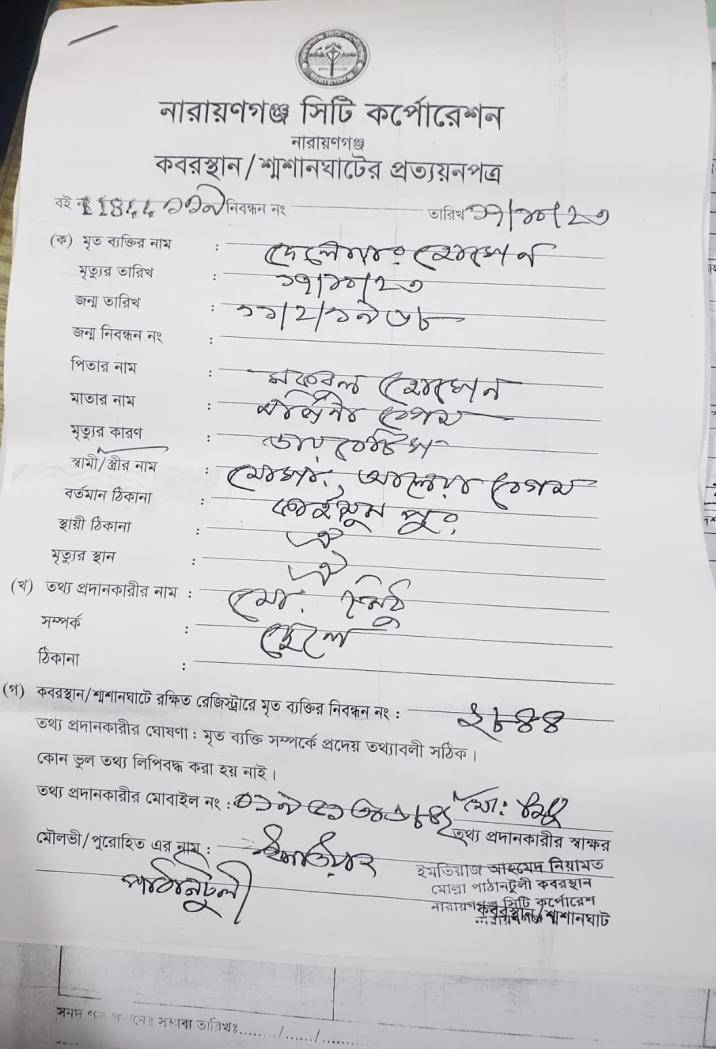 নারায়ণগঞ্জ সিটি কর্পোরেশন
নারায়ণগঞ্জ
কবরস্থান/শ্মশানঘাটের প্রত্যয়নপত্র
বই নং নিবন্ধন নং তারিখ ১৭/১০/২৩
(ক) মৃত ব্যক্তির নাম : দেলোয়ার হোসেন
মৃত্যুর তারিখ : ১৭/১০/২৩
জন্ম তারিখ : ১১/২/১৯৩৮
জন্ম নিবন্ধন নং :
পিতার নাম : মকবুল হোসেন
মাতার নাম : বেগম
মৃত্যুর কারণ : ডায়বেটিস
স্বামী/স্ত্রীর নাম : মোসা. আলেয়া বেগম
বর্তমান ঠিকানা :
স্থায়ী ঠিকানা : ঐ
মৃত্যুর স্থান : ঐ
(খ) তথ্য প্রদানকারীর নাম : মো.
সম্পর্ক : ছেলে
ঠিকানা :
(গ) কবরস্থান/শ্মশানঘাটে রক্ষিত রেজিস্ট্রারে মৃত ব্যক্তির নিবন্ধন নং :
তথ্য প্রদানকারীর ঘোষণা : মৃত ব্যক্তি সম্পর্কে প্রদেয় তথ্যাবলী সঠিক।
কোন ভুল তথ্য লিপিবদ্ধ করা হয় নাই।
তথ্য প্রদানকারীর মোবাইল নং : মো:
তথ্য প্রদানকারীর স্বাক্ষর
মৌলভী/পুরোহিত এর নাম :
পাঠানটুলী
ইমতিয়াজ আহমেদ নিয়ামত
মোল্লা পাঠানটুলী কবরস্থান
নারায়ণগঞ্জ সিটি কর্পোরেশ
কবরস্থান/শ্মশানঘাট